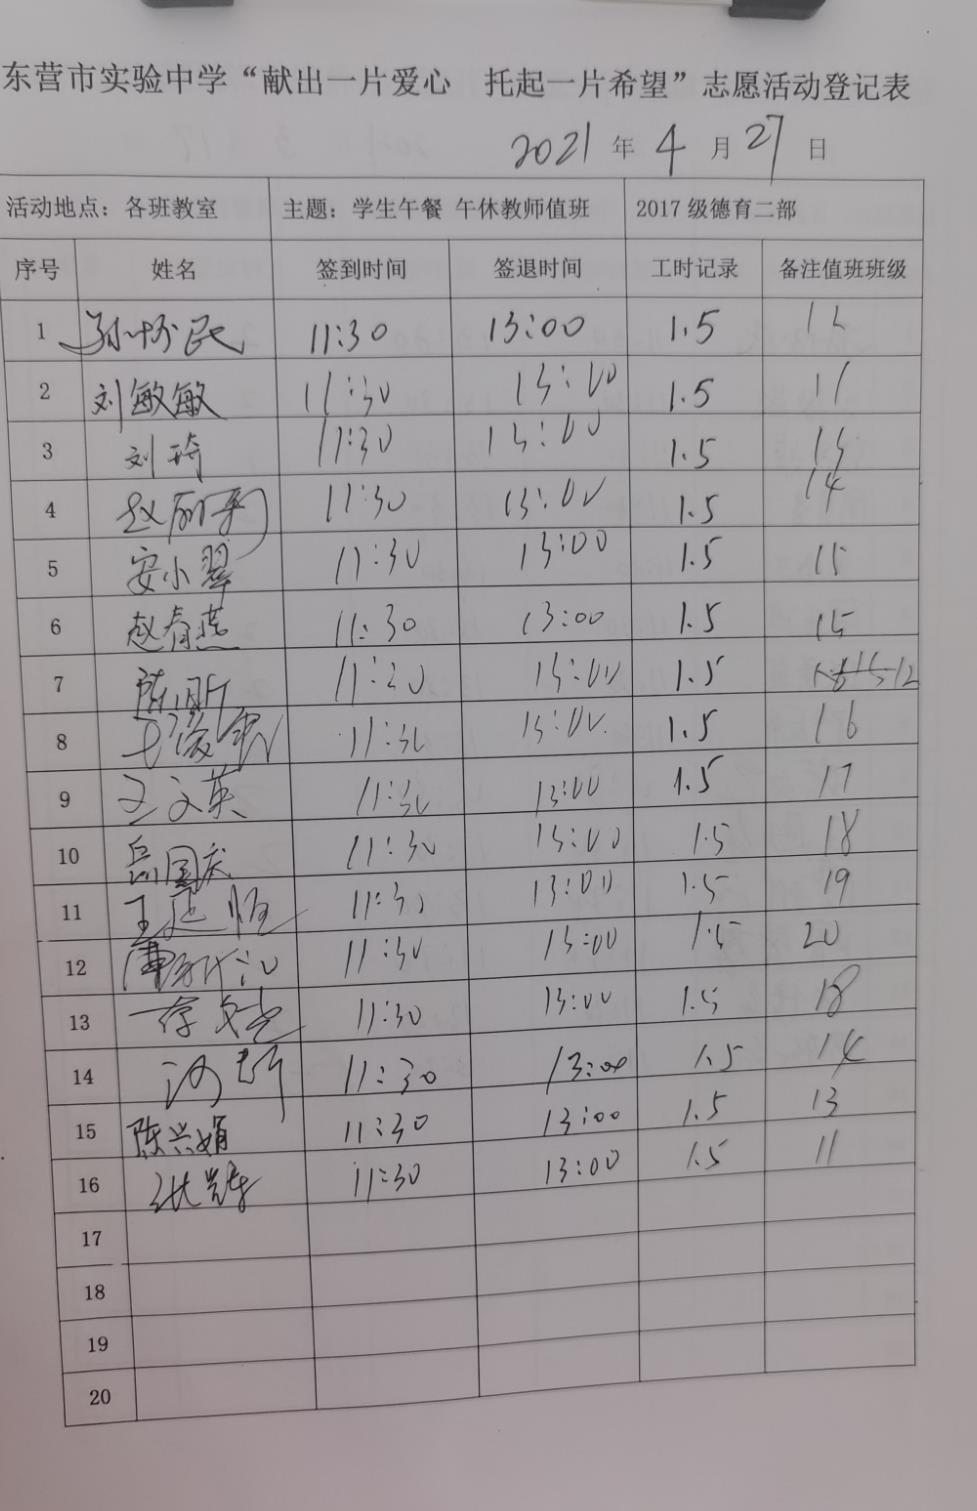 东营市实验中学“献出一片爱心 托起一片希望”志愿活动登记表
2021 年 4 月 27 日
活动地点：各班教室 主题：学生午餐 午休教师值班 2017 级德育二部
序号 姓名 签到时间 签退时间 工时记录 备注值班班级
1 11:30 13:00 1.5
2 刘敏敏 11:30 13:00 1.5 11
3 刘琦 11:30 13:00 1.5 13
4 11:30 13:00 1.5 14
5 安小翠 11:30 13:00 1.5 15
6 赵春燕 11:30 13:00 1.5 15
7 11:30 13:00 1.5
8 11:30 13:00 1.5 16
9 王文英 11:30 13:00 1.5 17
10 岳国庆 11:30 13:00 1.5 18
11 王延恒 11:30 13:00 1.5 19
12 11:30 13:00 1.5 20
13 11:30 13:00 1.5 18
14 11:30 13:00 1.5 14
15 陈兴娟 11:30 13:00 1.5 13
16 11:30 13:00 1.5 11
17
18
19
20